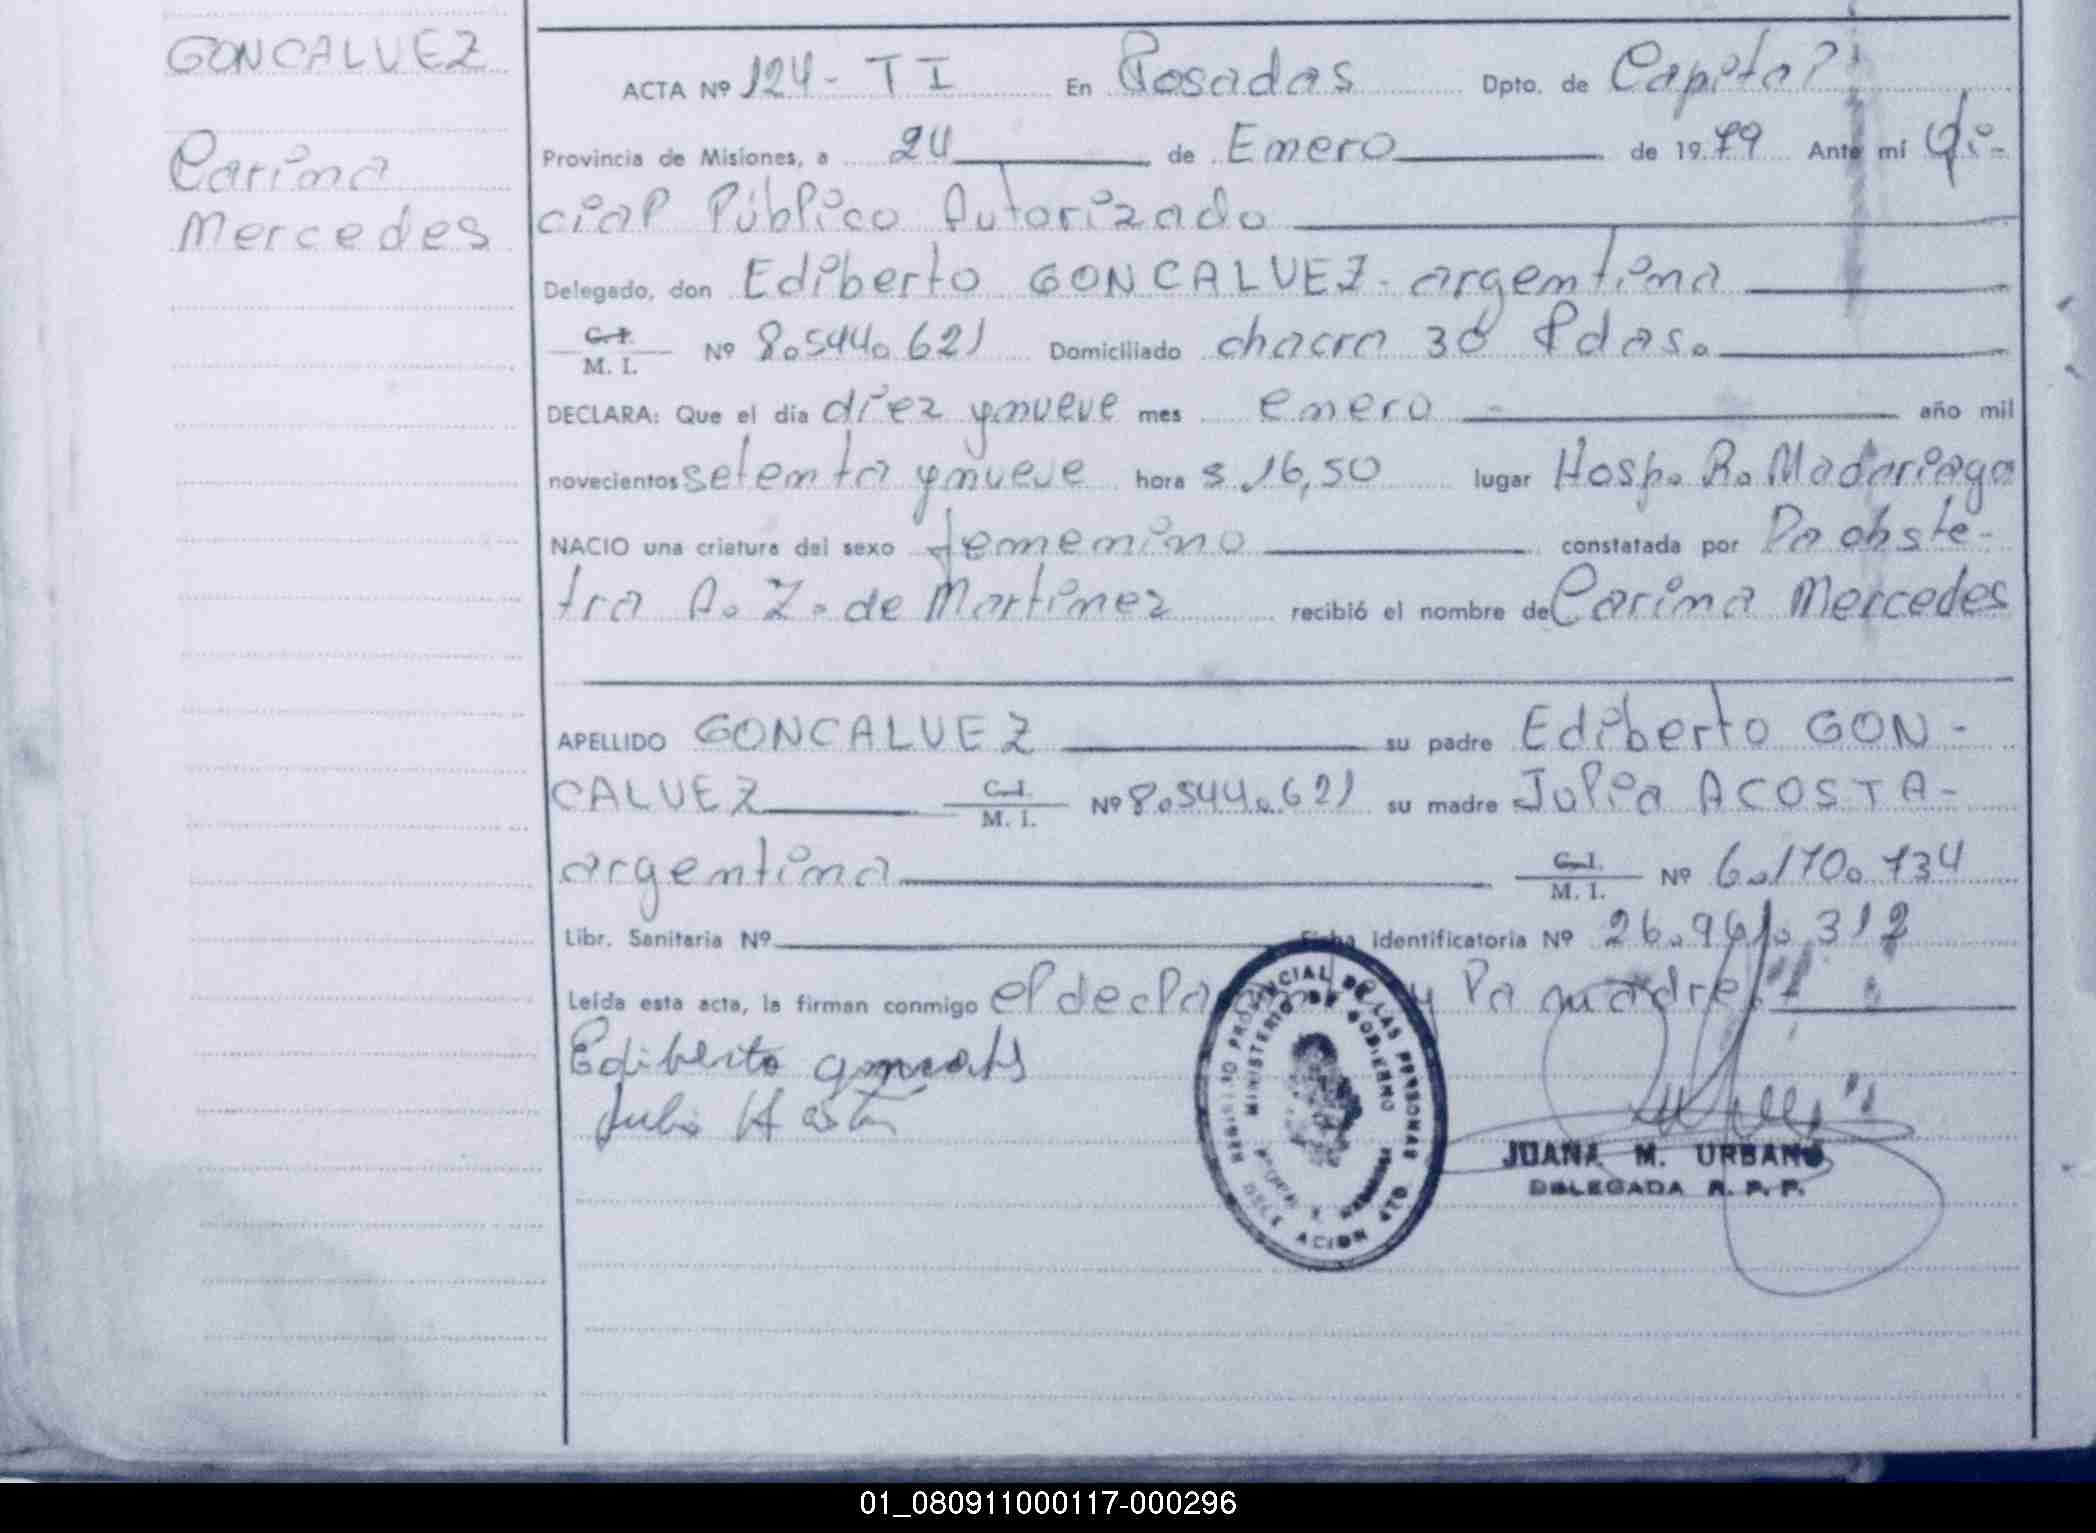 GONCALVEZ
Carina
Mercedes
ACTA Nº 124 - T I En Posadas Dpto. de Capital
Provincia de Misiones, a 24 de Enero de 1979 Ante mí Ofi-
cial Público Autorizado
Delegado, don Ediberto GONCALVEZ - argentina
C.I. M. I. Nº 8.544.621 Domiciliado chacra 36 Pdas.
DECLARA: Que el día diez y nueve mes enero año mil
novecientos setenta y nueve hora s 16,50 lugar Hosp. R. Madariaga
NACIO una criatura del sexo femenino constatada por la obste-
tra A. Z. de Martinez recibió el nombre de Carina Mercedes
APELLIDO GONCALVEZ su padre Ediberto GON-
CALVEZ C.I. M. I. Nº 8.544.621 su madre Julia ACOSTA-
argentina C.I. M. I. Nº 6.170.734
Libr. Sanitaria Nº Ficha identificatoria Nº 26.961.312
Leída esta acta, la firman conmigo el y la madre.
Ediberto
Julia
REGISTRO PROVINCIAL DE LAS PERSONAS
MINISTERIO DE GOBIERNO
JUANA M. URBANO
DELEGADA R. P. P.
01_080911000117-000296